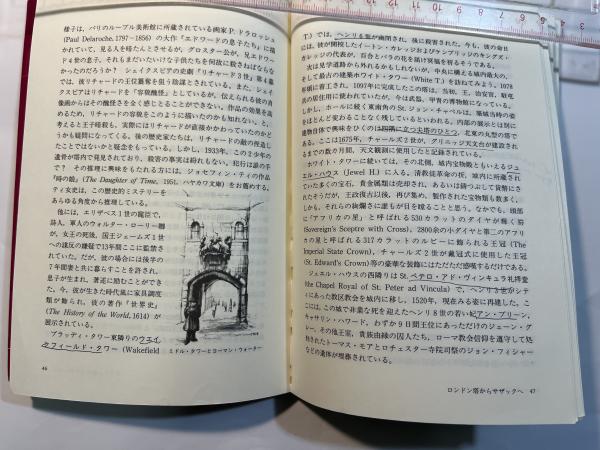 様子は、パリのルーブル美術館に所蔵されている画家P.ドラロッシュ
(Paul Delaroche, 1797−1856) の大作『エドワードの息子たち』に描
かれていて、見る人を暗たんとさせるが、グロスター公が、兄エドワー
ド4世の息子、それもまだいたいけな子供たちを何故に殺さねばならな
かったのだろうか? シェイクスピアの史劇『リチャード3世』第4幕
では、彼リチャードの王位簒奪を狙う陰謀とされている。また、シェイ
クスピアはリチャードを「容貌醜怪」としているが、伝えられる彼の肖
像画からはその醜怪さを全く感じとることができない。作品の効果を高
めるため、リチャードの容貌をこのように描いたのかも知れない、と、
考えると王子暗殺も、実際にはリチャードが直接かかわっていたのかど
うかも疑問になってくる。後の歴史家たちは、リチャードの敵の捏造し
たことではないかと疑念をもっている。しかし、1933年、この2少年の
遺骨が塔内で発見されており、殺害の事実は紛れもない。犯行は誰の手
で? その推理に興味をもたれる方には、ジョセフィン・ティの作品
『時の娘』(The Daughter of Time, 1951、ハヤカワ文庫) をお薦めする。
ティ女史は、この歴史的ミステリーを
あらゆる角度から推理している。
他には、エリザベス1世の寵臣で、
詩人、軍人のウォルター・ローリー卿
が、女王の死後、国王ジェームズ1世
への違反の嫌疑で13年間ここに監禁さ
れていた。だが、彼の場合には後半の
7年間妻と共に暮らすことを許され、
息子が生まれ、著述に励むことができ
た。今、彼が生きた時代風に家具調度
類が飾られ、彼の著作『世界史』
(The History of the World, 1614) が
展示されている。
ブラッディ・タワー東隣りのウエイ
クフィールド・タワー (Wakefield
ミドル・タワーとヨーマン・ウォーダー
46
T.) では、ヘンリ6世が幽閉され、後に殺害された。今も、彼の命日
には、彼が開校したイートン・カレッジおよびケンブリッジのキングズ・
カレッジの代表が、百合とバラの花を届け冥福を祈るそうである。
次は見学道路から外れるかもしれないが、中央に構える城内最大の、
そして最古の建築ホワイト・タワー (White T.) を訪ねてみよう。1078
年頃に着工され、1097年に完成したこの塔は、当初、王、治安官、駐屯
兵の居住用に使われていたが、今は武器、甲冑の博物館になっている。
しかし、ホールに続く東南角のSt. ジョン・チャペルは、築城当時の姿
をほとんど変わることなく残しているといわれる。内部の展示とは別に
建物自体で興味をひくのは四隅に立つ尖塔のひとつ、北東の丸型の塔で
ある。ここは1675年、チャールズ2世が、グリニッジ天文台が建設され
るまでの数カ月間、天文観測に使用したと記録されている。
ホワイト・タワーに続いては、その北側、城内宝物殿ともいえるジュ
エル・ハウス (Jewel H.) に入る。清教徒革命の折、城内に所蔵され
ていた多くの宝石、貴金属類は売却され、あるいは鋳つぶして貨幣にさ
れたそうだが、王政復古以後、再び集め、製作された宝物類も数多く、
しかも、それらの絢爛さに誰もが目を瞠ることと思う。なかでも、頭部
に「アフリカの星」と呼ばれる530カラットのダイヤが輝く笏
(Sovereign's Sceptre with Cross)、2800余の小ダイヤと第二のアフリ
カの星と呼ばれる317カラットのルビーに飾られる王冠 (The
Imperial State Crown)、チャールズ2世が戴冠式に使用した王冠
(St. Edward's Crown) 等の豪華な装飾にはただただ感嘆するだけである。
ジュエル・ハウスの西隣りはSt. ペテロ・アド・ヴィンキュラ礼拝堂
(the Chapel Royal of St. Peter ad Vincula) で、ヘンリ3世がシテ
ィにあった教区教会を城内に移し、1520年、現在みる姿に再建した。こ
こには、この城で非業な死を迎えたヘンリ8世の若い妃アン・ブリーン、
キャサリン・ハワード、わずか9日間王位にあっただけのジェーン・グ
レー、その他王室、貴族由縁の囚人たち、ローマ教会信仰を遵守して処
刑されたトーマス・モアとロチェスター寺院司祭のジョン・フィシャー
などの遺体が埋葬されている。
ロンドン塔からサザックへ 47